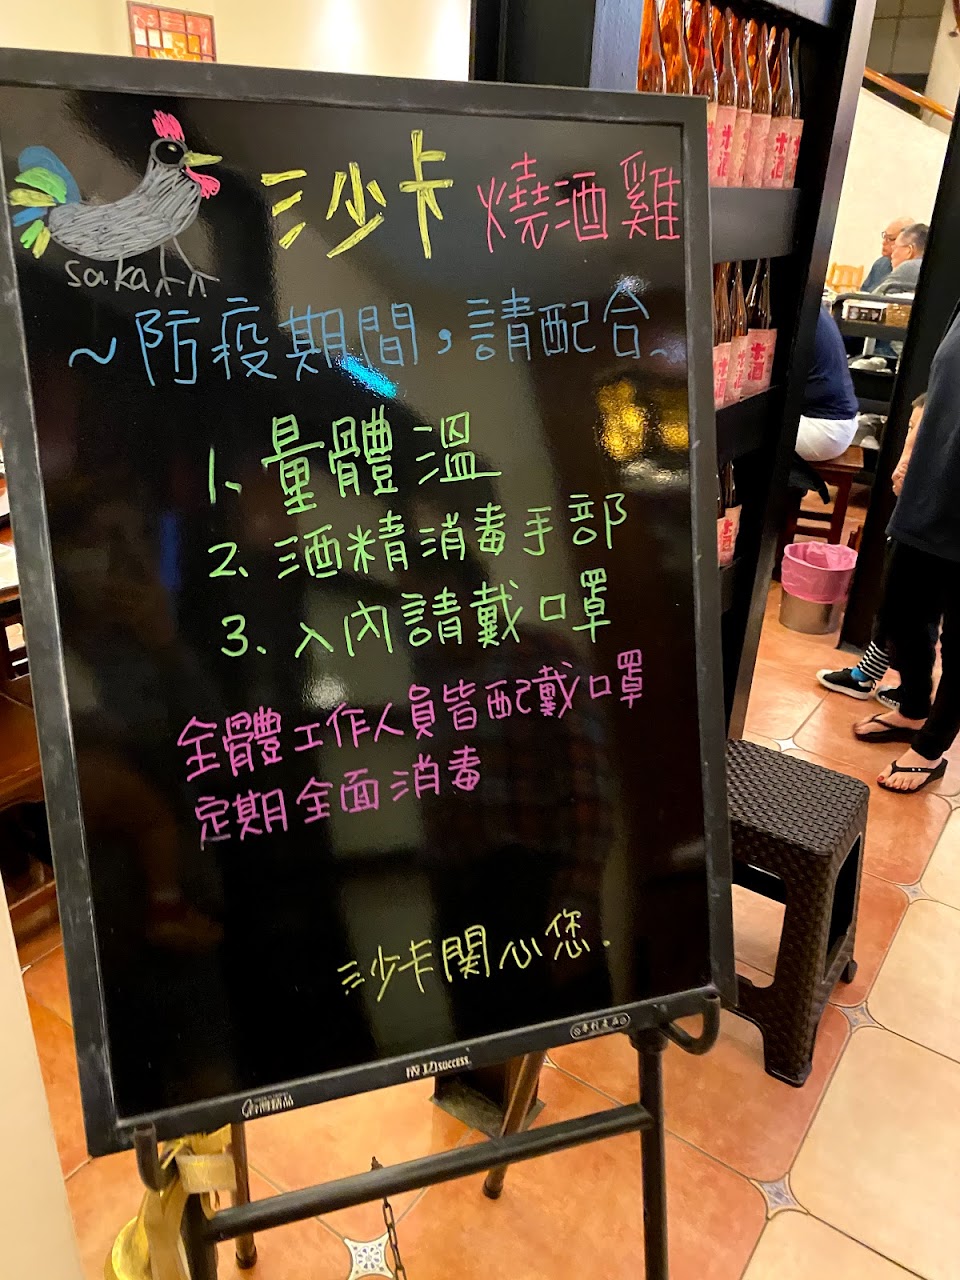 沙卡 燒酒雞
saka
~防疫期間，請配合~
1. 量體溫
2. 酒精消毒手部
3. 入內請戴口罩
全體工作人員皆配戴口罩
定期全面消毒
沙卡関心您.
成功SUCCESS
台灣精品
專利產品
米酒
米酒
米酒